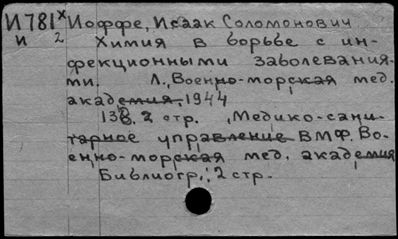 И781х Иоффе, Исаак Соломонович
и 2 Химия в борьбе с ин-
фекционными заболевания-
ми. Л., Военно-морская мед.
академия, 1944
138, 2 стр. (Медико-сани-
тарное управление ВМФ. Во-
енно-морская мед. академия
Библиогр.: 2 стр.